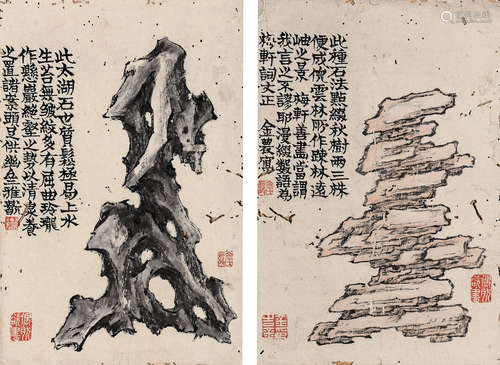 此種石法點綴秋樹兩三株
便成倪雲林彫作疎林遠
岫之景 梅軒善畫當謂
我言之不謬耶漫綴數語為
梅軒詞丈正 金農寫
此太湖石也質鬆極易上水
生苔無皺紋多有屈曲玲瓏
作懸巖絕壑之勢以清泉養
之置諸案頭且供幽人雅翫